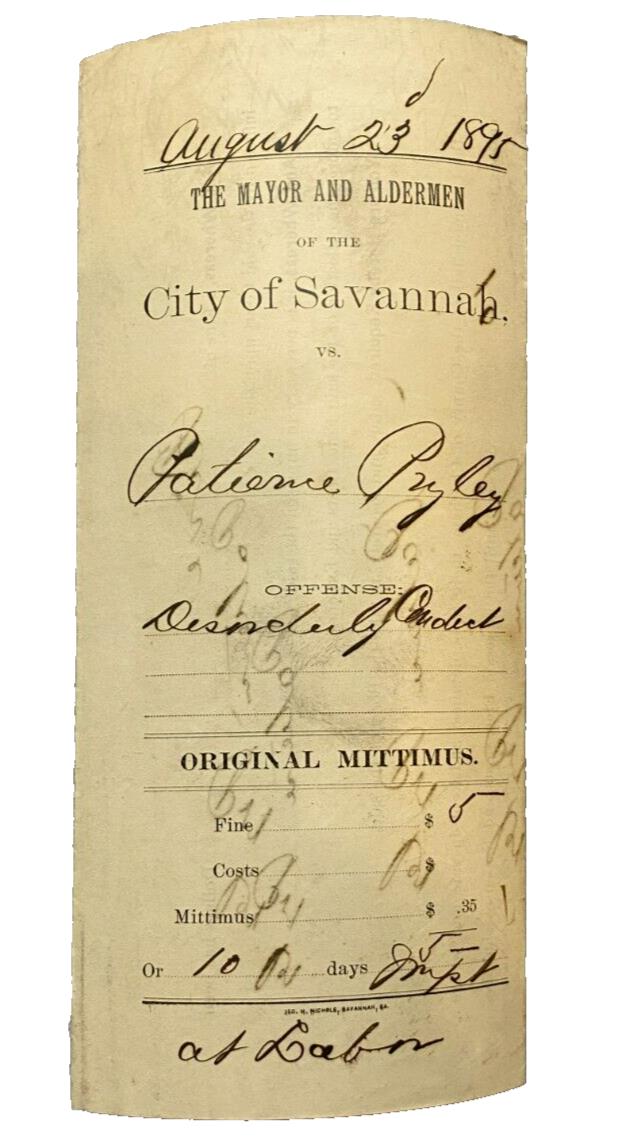 August 23d 1895
THE MAYOR AND ALDERMEN
OF THE
City of Savannah,
VS.
Patience Pryley
OFFENSE:
Disorderly Conduct
ORIGINAL MITTIMUS.
Fine $ 5
Costs $
Mittimus $ .35
5
Or 10 days Impt
GEO. N. NICHOLS, SAVANNAH, GA.
at Labor